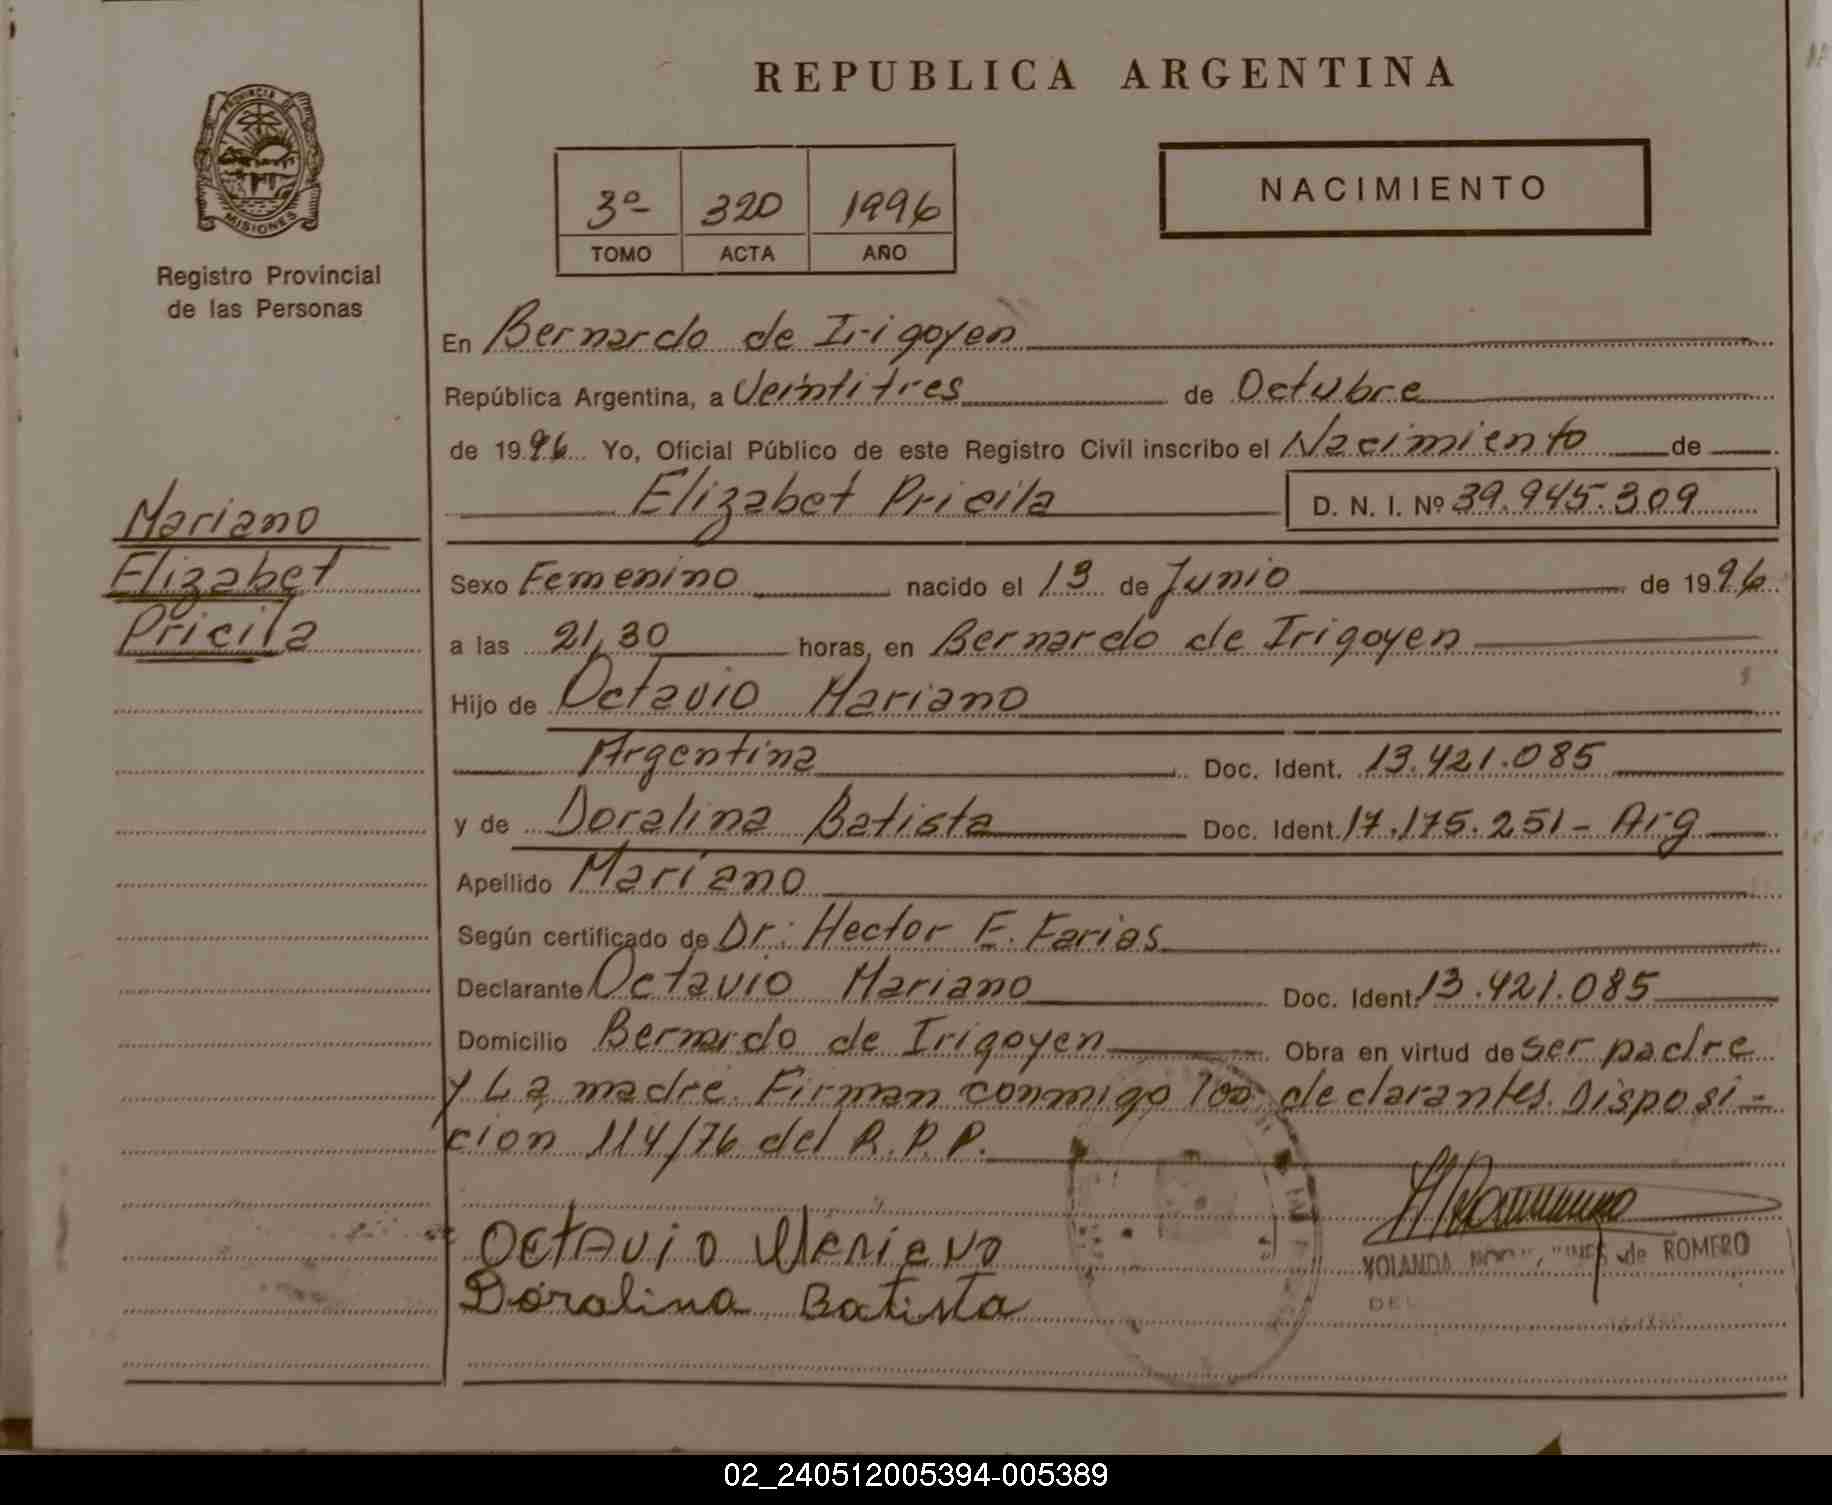 REPUBLICA ARGENTINA
PROVINCIA DE
MISIONES
Registro Provincial
de las Personas
3º 320 1996
TOMO ACTA AÑO
NACIMIENTO
En Bernardo de Irigoyen
República Argentina, a Veintitres de Octubre
de 1996 Yo, Oficial Público de este Registro Civil inscribo el Nacimiento de
Elizabet Pricila D. N. I. Nº 39.945.309
Mariano
Elizabet
Pricila
Sexo Femenino nacido el 13 de Junio de 1996
a las 21,30 horas, en Bernardo de Irigoyen
Hijo de Octavio Mariano
Argentina Doc. Ident. 13.421.085
y de Doralina Batista Doc. Ident. 17.175.251 - Arg
Apellido Mariano
Según certificado de Dr: Hector F. Farias
Declarante Octavio Mariano Doc. Ident. 13.421.085
Domicilio Bernardo de Irigoyen Obra en virtud de ser padre
y La madre. Firman conmigo los declarantes. Disposi-
cion 114/76 del R.P.P.
Octavio Mariano
Doralina Batista
YOLANDA de ROMERO
02_240512005394-005389